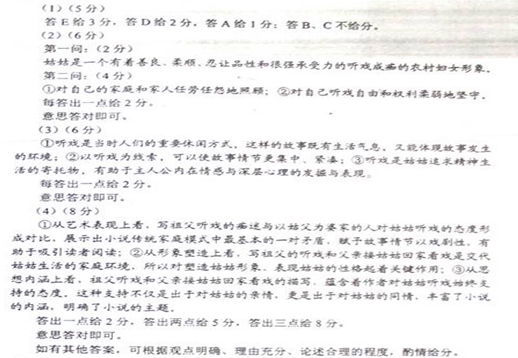 (1)(5分)
答E给3分,答D给2分,答A给1分;答B、C不给分。
(2)(6分)
第一问:(2分)
姑姑是一个有着善良、柔顺、忍让品性和很强承受力的听戏成癖的农村妇女形象。
第二问:(4分)
①对自己的家庭和家人任劳任怨地照顾;②对自己听戏自由和权利柔弱地坚守。
每答出一点给2分。
意思答对即可。
(3)(6分)
①听戏是当时人们的重要休闲方式,这样的故事既有生活气息,又能体现故事发生
的环境;②以听戏为线索,可以使故事情节更集中、紧凑;③听戏是姑姑追求精神生
活的寄托物,有助于主人公内在情感与深层心理的发掘与表现。
每答出一点给2分。
意思答对即可。
(4)(8分)
①从艺术表现上看,写祖父听戏的痴迷与以姑父为婆家的人对姑姑听戏的态度形
成对比,展示出小说传统家庭模式中最基本的一对矛盾,赋予故事情节以戏剧性,有
助于吸引读者阅读;②从形象塑造上看,写祖父的听戏和父亲接姑姑回家看戏是交代
姑姑生活的家庭环境,所以对塑造姑姑形象、表现姑姑的性格起着关键作用;③从思
想内涵上看,祖父听戏和父亲接姑姑回家看戏的描写,蕴含着作者对姑姑听戏始终支
持的态度。这种支持不仅是出于对姑姑的亲情,更是出于对姑姑的同情,丰富了小说
的内涵,明确了小说的主题。
答出一点给2分,答出两点给5分,答出三点给8分。
意思答对即可。
如有其他答案,可根据观点明确、理由充分、论述合理的程度,酌情给分。